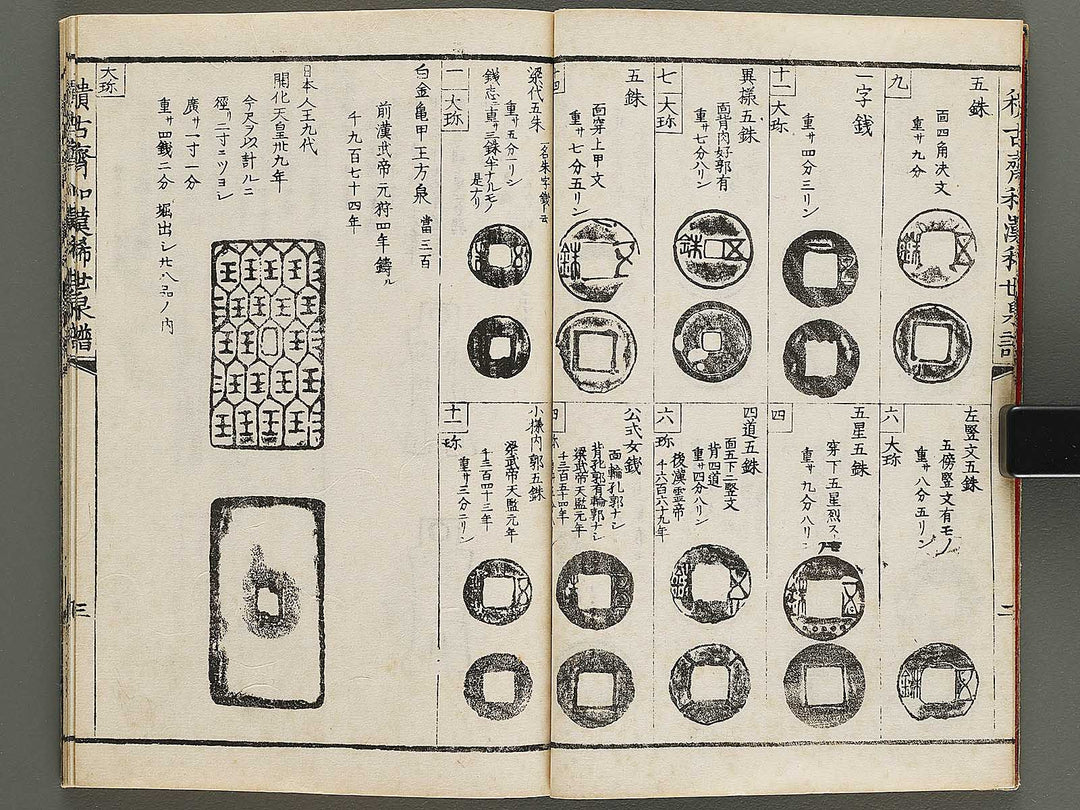 五銖
面四角决文
重サ九分
九
一字銭
重サ四分三リン
十一
大珎
異様五銖
面背肉好郭有
重サ七分八リン
七
大珎
五銖
面穿上甲文
重サ七分五リン
左竪文五銖
五傍竪文有モノ
重サ八分五リン
六
大珎
五星五銖
穿下五星烈ス
重サ九分八リン
四
四道五銖
面五下二竪文
背四道
重サ四分八リン
後漢霊帝
千六百六十九年
六
珎
公式女銭
面輪孔郭ナシ
背孔郭有輪郭ナシ
梁武帝天監元年
千三百五十四年
四
梁代五朱
一名朱字銭ト云
重サ五分一リン
銭志ニ重サ三銖半ナルモノ
是ナリ
一
大珎
小様内郭五銖
梁武帝天監元年
千三百四十三年
重サ三分二リン
十一
珎
白金亀甲王方泉
當三百
前漢武帝元狩四年鑄ル
千九百七十四年
日本人王九代
開化天皇卅九年
今尺ヲ以計ルニ
徑リ二寸ニツヨシ
廣サ一寸一分
重サ四銭二分
堀出シ廿八品ノ内
大珎
三